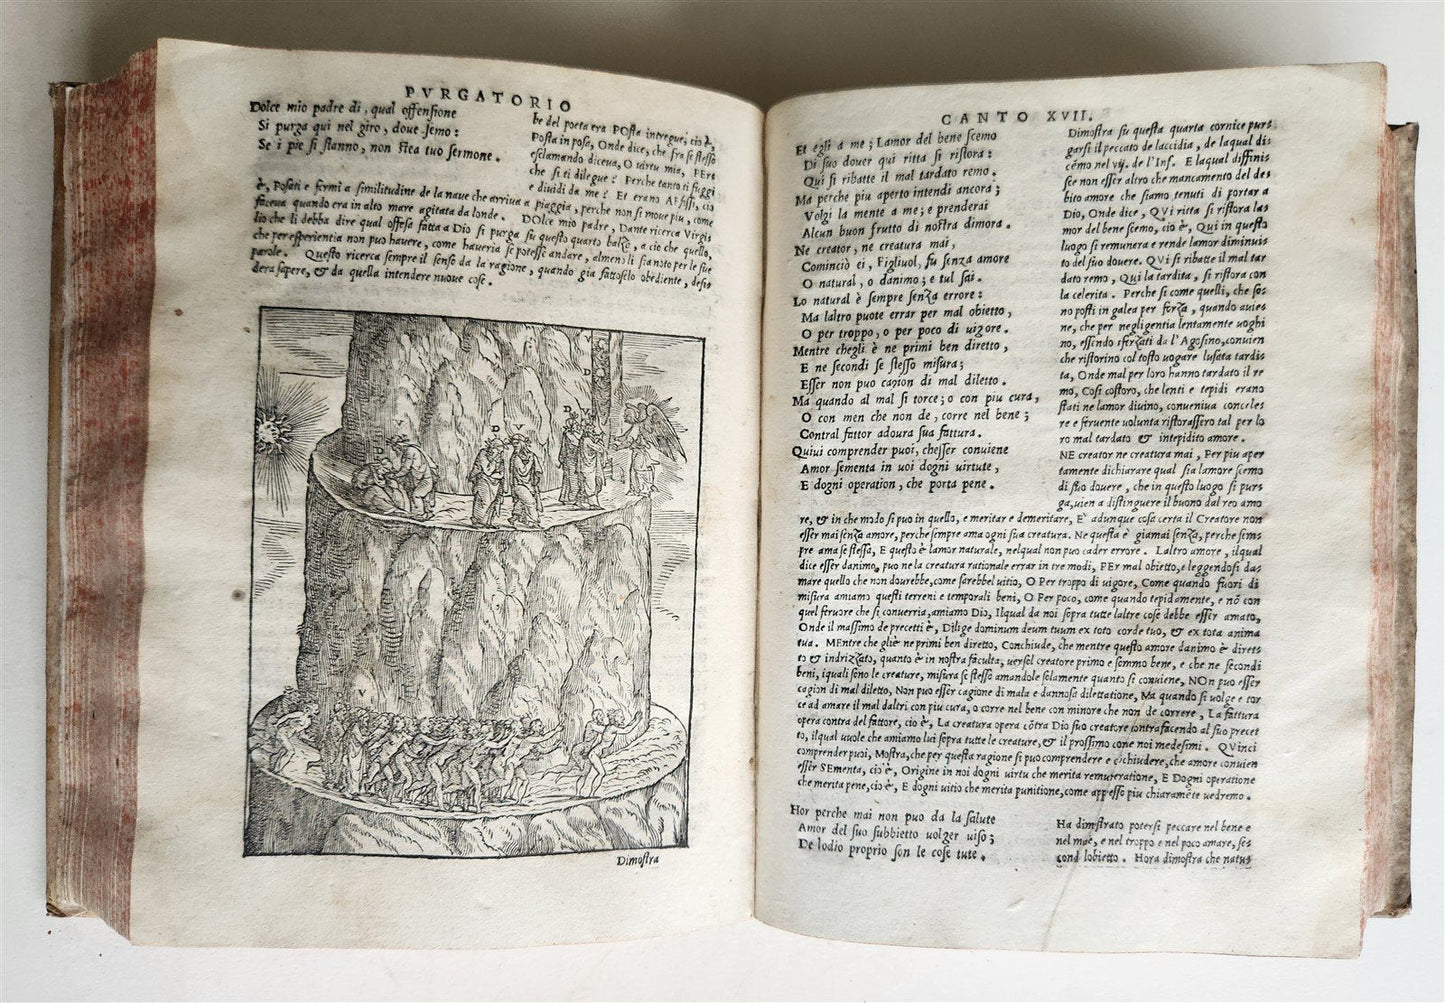 PVRGATORIO
Dolce mio padre di, qual offensione
Si purga qui nel giro, doue semo:
Se i pie si stanno, non stea tuo sermone.
be del poeta era POsta intregue, cio è,
Posta in posa, Onde dice, che fra se stesso
esclamando diceua, O uirtu mia, PErs
che si ti dilegue? Perche tanto ti fuggi
e diuidi da me? Et erano AFfissi, cio
è, Posati e fermi a similitudine de la naue che arriua a piaggia, perche non si moue piu, come
faceua quando era in alto mare agitata da londe. DOlce mio padre, Dante ricerca Virgis
lio che li debba dire qual offesa fatta a Dio si purga su questo quarto balzo, a cio che quello,
che per esperientia non puo hauere, come haueria se potesse andare, almeno li sia noto per le sue
parole. Questo ricerca sempre il senso da la ragione, quando gia fattoselo obediente, desis
dera sapere, & da quella intendere nuoue cose.
V
D
D V
D V
V
D
V
Dimostra
CANTO XVII.
Et egli a me; Lamor del bene scemo
Di suo douer qui ritta si ristora:
Qui si ribatte il mal tardato remo.
Ma perche piu aperto intendi ancora;
Volgi la mente a me; e prenderai
Alcun buon frutto di nostra dimora.
Ne creator, ne creatura mai,
Cominciò ei, Figliuol, fu senza amore
O natural, o danimo; e tul sai.
Lo natural è sempre senza errore:
Ma laltro puote errar per mal obietto,
O per troppo, o per poco di uigore.
Mentre chegli è ne primi ben diretto,
E ne secondi se stesso misura;
Esser non puo cagion di mal diletto.
Ma quando al mal si torce; o con piu cura,
O con men che non de, corre nel bene;
Contral fattor adoura sua fattura.
Quiui comprender puoi, chesser conuiene
Amor sementa in uoi dogni uirtute,
E dogni operation, che porta pene.
Dimostra su questa quarta cornice purs
garsi il peccato de laccidia, de laqual di
cemo nel vij. de l'Inf. E laqual diffinis
sce non esser altro che mancamento del des
bito amore che siamo tenuti di portar a
Dio, Onde dice, QVi ritta si ristora las
mor del bene scemo, cio è, Qui in questo
luogo si remunera e rende lamor diminuis
to del suo douere. QVi si ribatte il mal tar
dato remo, Qui la tardita, si ristora con
la celerita. Perche si come quelli, che so
no posti in galea per forza, quando auies
ne, che per negligentia lentamente uoghi
no, essendo sferzati da l'Agosino, conuien
che ristorino col tosto uogare lusata tardis
ta, Onde mal per loro hanno tardato il re
mo, Cosi costoro, che lenti e tepidi erano
stati ne lamor diuino, conueniua con celes
re e feruente uolunta ristorassero tal per lo
ro mal tardato & intepidito amore.
NE creator ne creatura mai, Per piu aper
tamente dichiarare qual sia lamore scemo
di suo douere, che in questo luogo si purs
ga, uien a distinguere il buono dal reo amo
re, & in che modo si puo in quello, e meritar e demeritare, E' adunque cosa certa il Creatore non
esser mai senza amore, perche sempre ama ogni sua creatura. Ne questa è giamai senza, perche sems
pre ama se stessa, E questo è lamor naturale, nelqual non puo cader errore. Laltro amore, ilqual
dice esser danimo, puo ne la creatura rationale errar in tre modi, PEr mal obietto, e leggendosi das
mare quello che non dourebbe, come sarebbel uitio, O Per troppo di uigore, Come quando fuori di
misura amiamo questi terreni e temporali beni, O Per poco, come quando tepidamente, e nõ con
quel feruore che si conuerria, amiamo Dio, Ilqual da noi sopra tutte laltre cose debbe esser amato,
Onde il massimo de precetti è, Dilige dominum deum tuum ex toto corde tuo, & ex tota anima
tua. MEntre che gliè ne primi ben diretto, Conchiude, che mentre questo amore danimo è direts
to & indrizzato, quanto è in nostra faculta, uersol creatore primo e sommo bene, e che ne secondi
beni, iquali sono le creature, misura se stesso amandole solamente quanto si conuiene, NOn puo esser
cagion di mal diletto, Non puo esser cagione di mala e dannosa dilettatione, Ma quando si uolge e tor
ce ad amare il mal daltri con piu cura, o corre nel bene con minore che non de correre, La fattura
opera contra del fattore, cio è, La creatura opera cõtra Dio suo creatore contrafacendo al suo precet
to, ilqual uuole che amiamo lui sopra tutte le creature, & il prossimo come noi medesimi. QVinci
comprender puoi, Mostra, che per questa ragione si puo comprendere e cõchiudere, che amore conuien
esser SEmenta, cio è, Origine in noi dogni uirtu che merita remuneratione, E Dogni operatione
che merita pene, cio è, E dogni uitio che merita punitione, come appresso piu chiaramẽte uedremo.
Hor perche mai non puo da la salute
Amor del suo subbietto uolger uiso;
De lodio proprio son le cose tute.
Ha dimostrato potersi peccare nel bene e
nel mal, e nel troppo e nel poco amare, ses
cond lobietto. Hora dimostra che natus